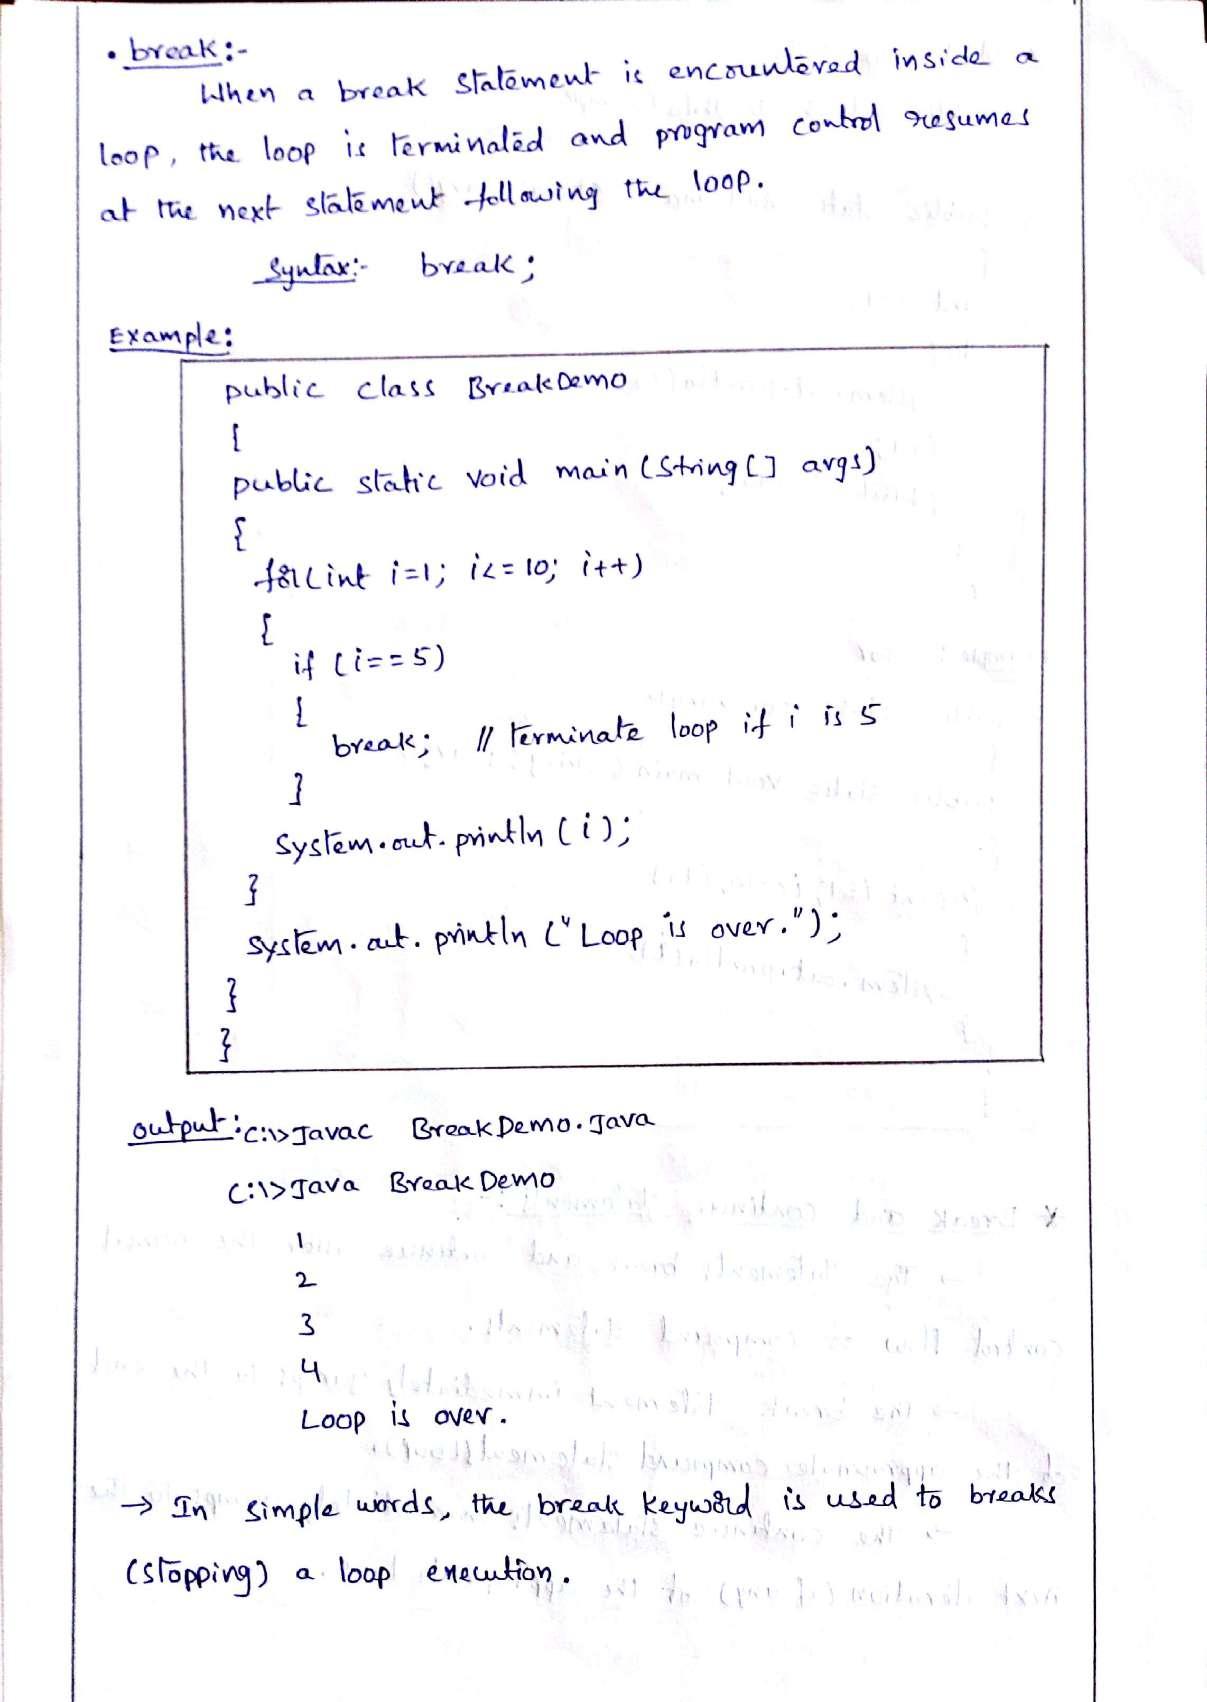 • break:-
When a break statement is encountered inside a
loop, the loop is terminated and program control resumes
at the next statement following the loop.
Syntax:- break;
Example:
public class BreakDemo
{
public static void main (String[] args)
{
for(int i=1; i<=10; i++)
{
if (i==5)
{
break; // terminate loop if i is 5
}
System.out.println (i);
}
System.out.println ("Loop is over.");
}
}
output: C:\>Javac BreakDemo.Java
C:\>Java BreakDemo
1
2
3
4
Loop is over.
→ In simple words, the break keyword is used to breaks
(stopping) a loop execution.